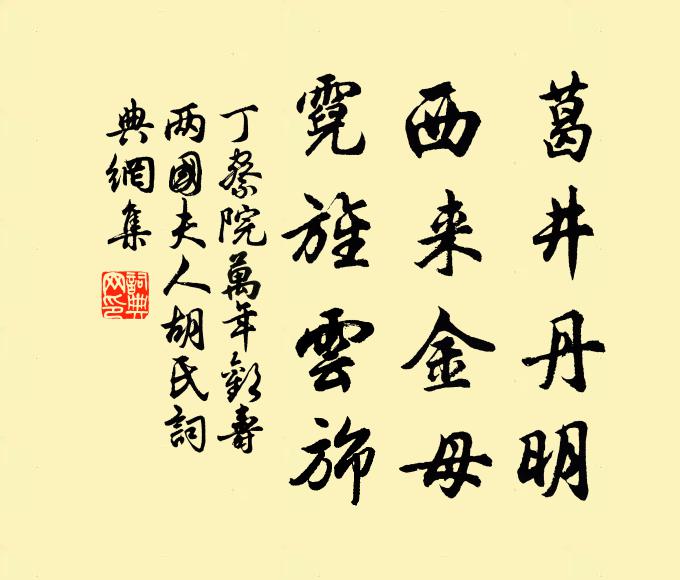 葛井丹明
西来金母
霓旌雲旆
丁察院萬年歡壽
两國夫人胡氏詞
典網集
詞典网印